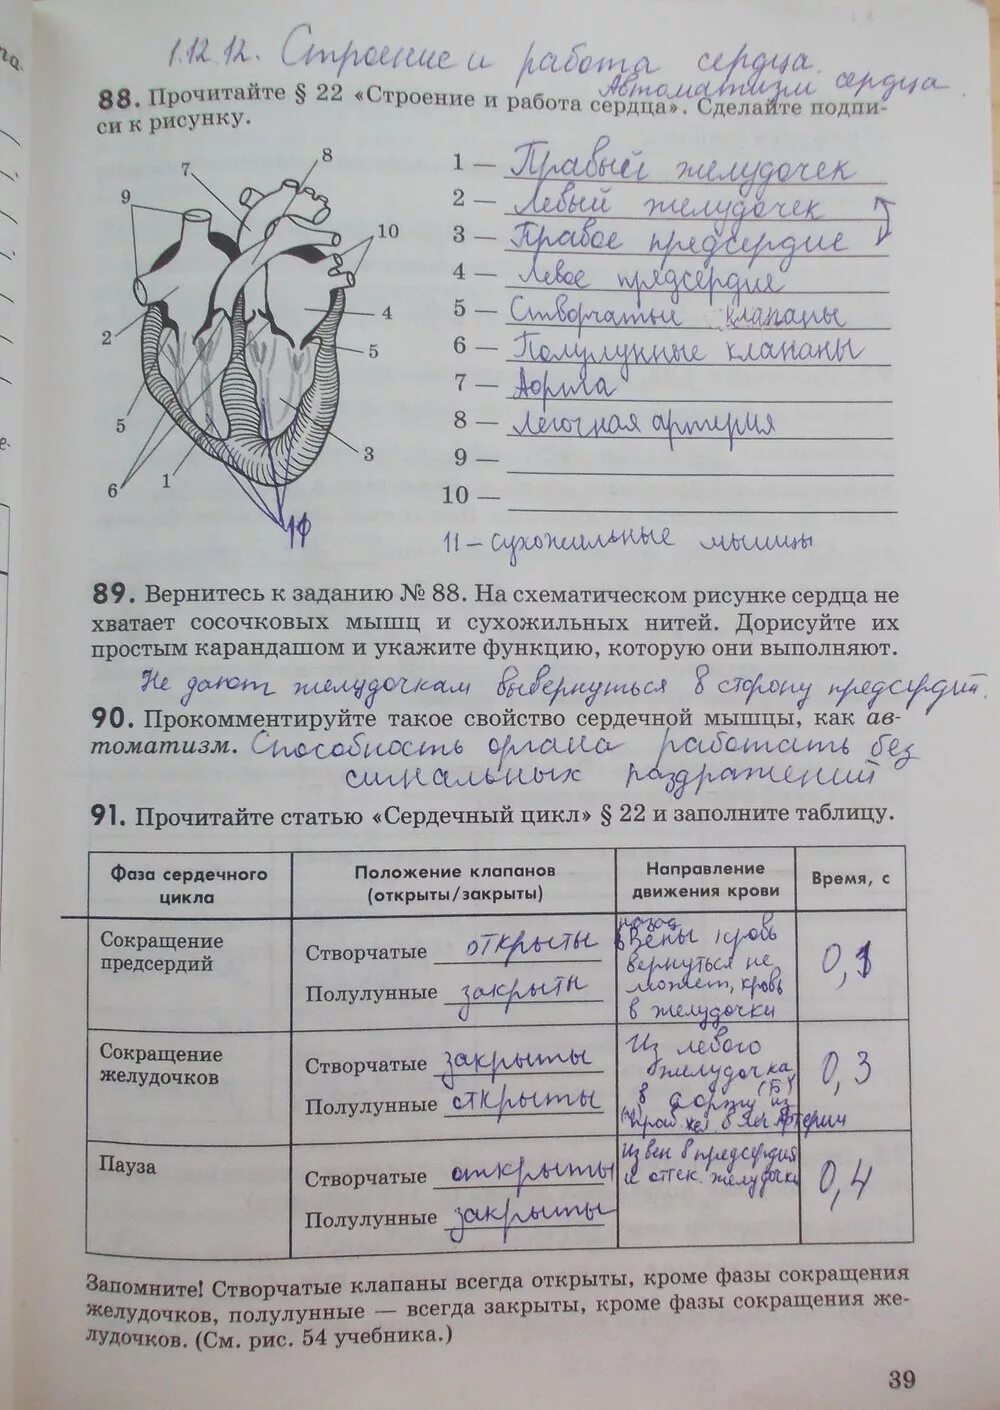 1.12.12. Строение и работа сердца.
Автоматизм сердца
88. Прочитайте § 22 «Строение и работа сердца». Сделайте подпи-
си к рисунку.
1 — Правый желудочек
2 — Левый желудочек
3 — Правое предсердие
4 — Левое предсердие
5 — Створчатые клапаны
6 — Полулунные клапаны
7 — Аорта
8 — Легочная артерия
9 —
10 —
11 - сухожильные мышцы
7
8
9
10
2
4
5
5
3
6
1
11
89. Вернитесь к заданию № 88. На схематическом рисунке сердца не
хватает сосочковых мышц и сухожильных нитей. Дорисуйте их
простым карандашом и укажите функцию, которую они выполняют.
Не дают желудочкам вывернуться в сторону предсердий.
90. Прокомментируйте такое свойство сердечной мышцы, как ав-
томатизм. Способность органа работать без
сигнальных раздражений
91. Прочитайте статью «Сердечный цикл» § 22 и заполните таблицу.
Фаза сердечного
цикла
Положение клапанов
(открыты/закрыты)
Направление
движения крови
Время, с
Сокращение
предсердий
Створчатые открыты
Полулунные закрыты
назад
в Вены кровь
вернуться не
может, кровь
в желудочки
0,1
Сокращение
желудочков
Створчатые закрыты
Полулунные открыты
Из левого
желудочка
в аорту (Б) из
прав. жел. в лег. артерии
0,3
Пауза
Створчатые открыты
Полулунные закрыты
Из вен в предсердия
и оттек. желудочки
0,4
Запомните! Створчатые клапаны всегда открыты, кроме фазы сокращения
желудочков, полулунные — всегда закрыты, кроме фазы сокращения же-
лудочков. (См. рис. 54 учебника.)
39